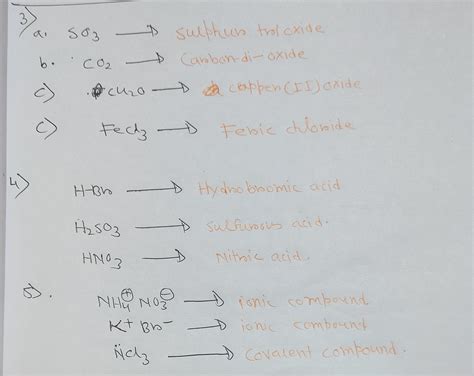 3)
a. SO3 → Sulphur trioxide
b. CO2 → Carbon-di-oxide
c) CU2O → copper(II) oxide
c) FeCl3 → Feric chloride
4)
H-Br → Hydrobromic acid
H2SO3 → Sulfurous acid.
HNO3 → Nitric acid.
5).
NH4⊕ NO3⊖ → ionic compound
K+ Br- → ionic compound
N̈Cl3 → Covalent compound.